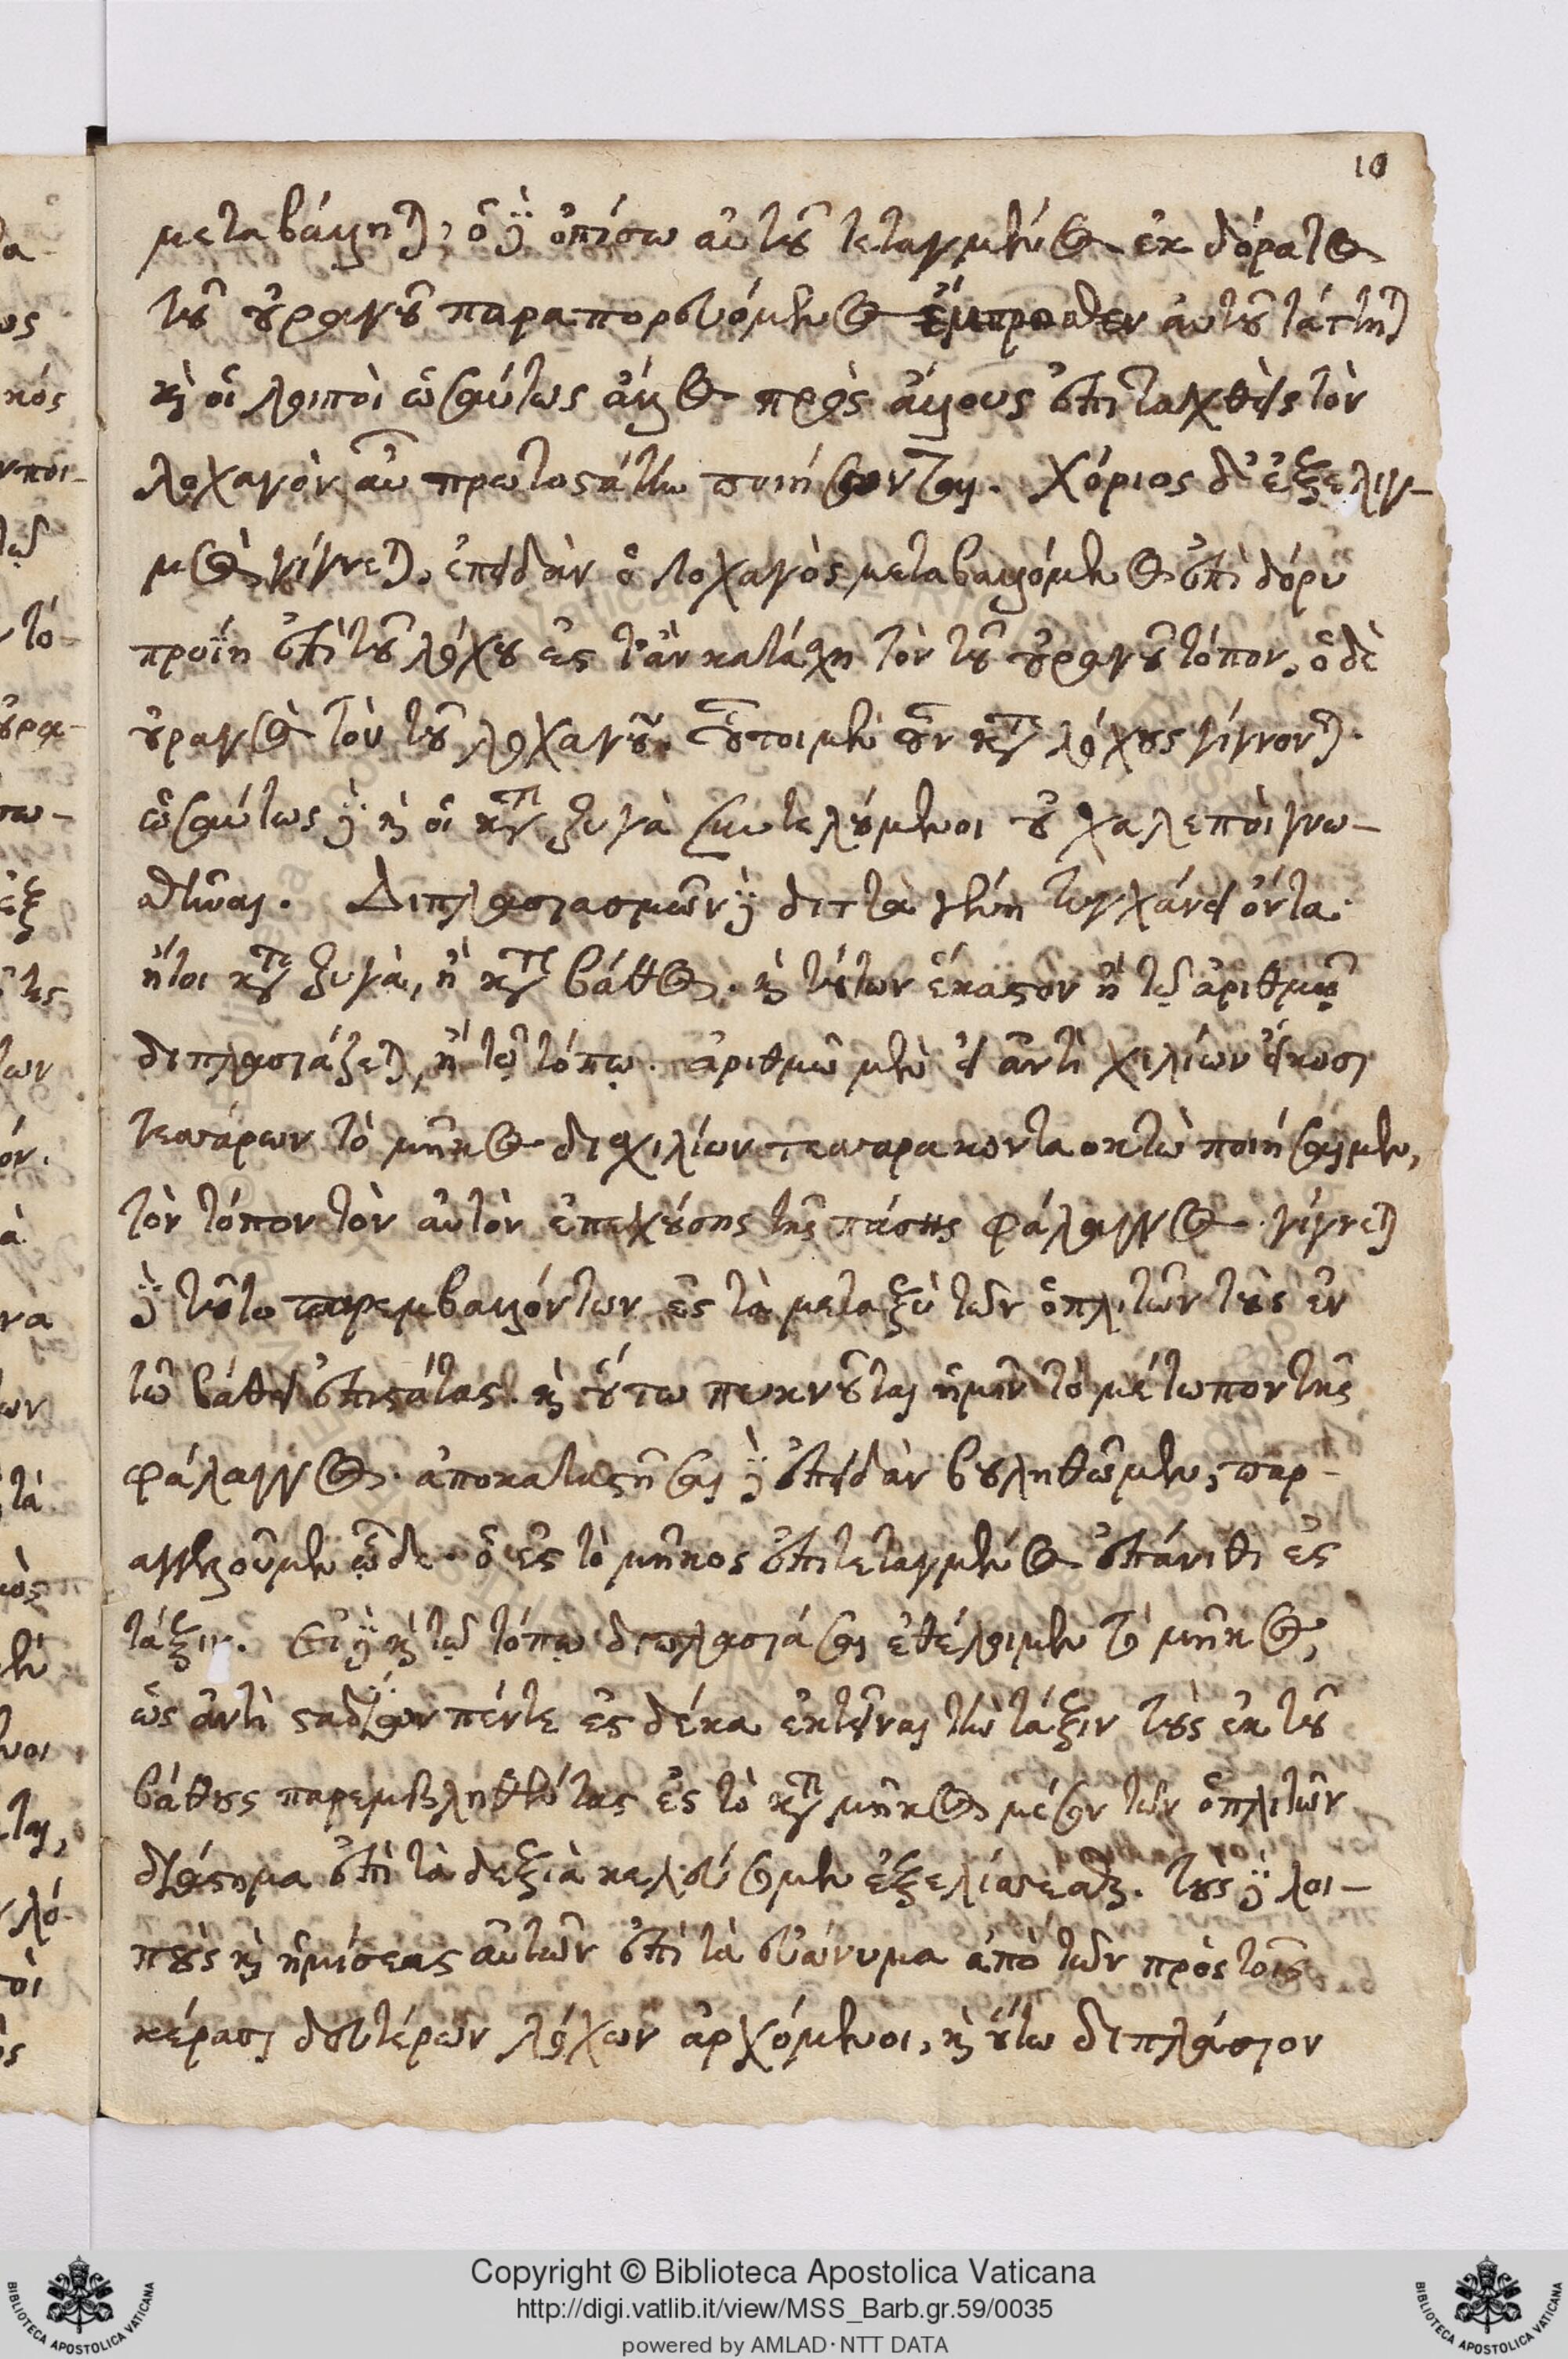 10
μεταβάλληται, ὁ δὲ ὀπίσω αὐτοῦ τεταγμένος ἐκ δόρατος
τοῦ οὐραγοῦ παραπορευόμενος ἔμπροσθεν αὐτοῦ τάττηται
καὶ οἱ λοιποὶ ὡσαύτως ἄλλος πρὸς ἄλλους ἐπιταχθεὶς τὸν
λοχαγὸν αὖ πρωτοστάτην ποιήσονται. Χόριος δ' ἐξελιγ-
μὸς γίγνεται, ἐπειδὰν ὁ λοχαγὸς μεταβαλλόμενος ἐπὶ δόρυ
προΐῃ ἐπὶ τοῦ λόχου ἐς τ' ἂν κατάσχῃ τὸν τοῦ οὐραγοῦ τόπον, ὁ δὲ
οὐραγὸς τὸν τοῦ λοχαγοῦ. οὗτοι μὲν οὖν κατὰ λόχους γίγνονται.
ὡσαύτως δὲ καὶ οἱ κατὰ ζυγὰ συντελούμενοι οὐ χαλεποὶ γνω-
σθῆναι. Διπλασιασμῶν δὲ διττὰ γένη τυγχάνει ὄντα.
ἤτοι κατὰ ζυγὰ, ἢ κατὰ βάθος. καὶ τούτων ἕκαστον ἢ τῷ ἀριθμῷ
διπλασιάζεται, ἢ τῷ τόπῳ. ἀριθμῷ μὲν εἰ ἀντὶ χιλίων εἴκοσι
τεσσάρων τὸ μῆκος δισχιλίων τεσσαρακονταοκτὼ ποιήσαιμεν,
τὸν τόπον τὸν αὐτὸν ἐπεχούσης τῆς πάσης φάλαγγος. γίγνεται
δὲ τοῦτο παρεμβαλλόντων ἐς τὰ μεταξὺ τῶν ὁπλιτῶν τοὺς ἐν
τῷ βάθει ἐπιστάτας. καὶ οὕτω πυκνοῦται ἡμῖν τὸ μέτωπον τῆς
φάλαγγος. ἀποκαταστῆσαι δὲ ἐπειδὰν βουληθῶμεν, παρ-
αγγελοῦμεν ὧδε. ὁ ἐς τὸ μῆκος ἐπιτεταγμένος ἐπάνιθι ἐς
τάξιν. Εἰ δὲ καὶ τῷ τόπῳ διπλασιάσαι ἐθέλοιμεν τὸ μῆκος,
ὡς ἀντὶ σταδίων πέντε ἐς δέκα ἐκτεῖναι τὴν τάξιν τοὺς ἐκ τοῦ
βάθους παρεμβληθέντας ἐς τὸ κατὰ μῆκος μέσον τῶν ὁπλιτῶν
διάστημα ἐπὶ τὰ δεξιὰ κελεύσομεν ἐξελίσσεσθαι. τοὺς δὲ λοι-
ποὺς καὶ ἡμίσεας αὐτῶν ἐπὶ τὰ εὐώνυμα ἀπὸ τῶν πρὸς τοῖς
κέρασι δευτέρων λόχων ἀρχόμενοι, καὶ οὕτω διπλάσιον
Copyright © Biblioteca Apostolica Vaticana
http://digi.vatlib.it/view/MSS_Barb.gr.59/0035
powered by AMLAD·NTT DATA
BIBLIOTECA APOSTOLICA VATICANA
BIBLIOTECA APOSTOLICA VATICANA